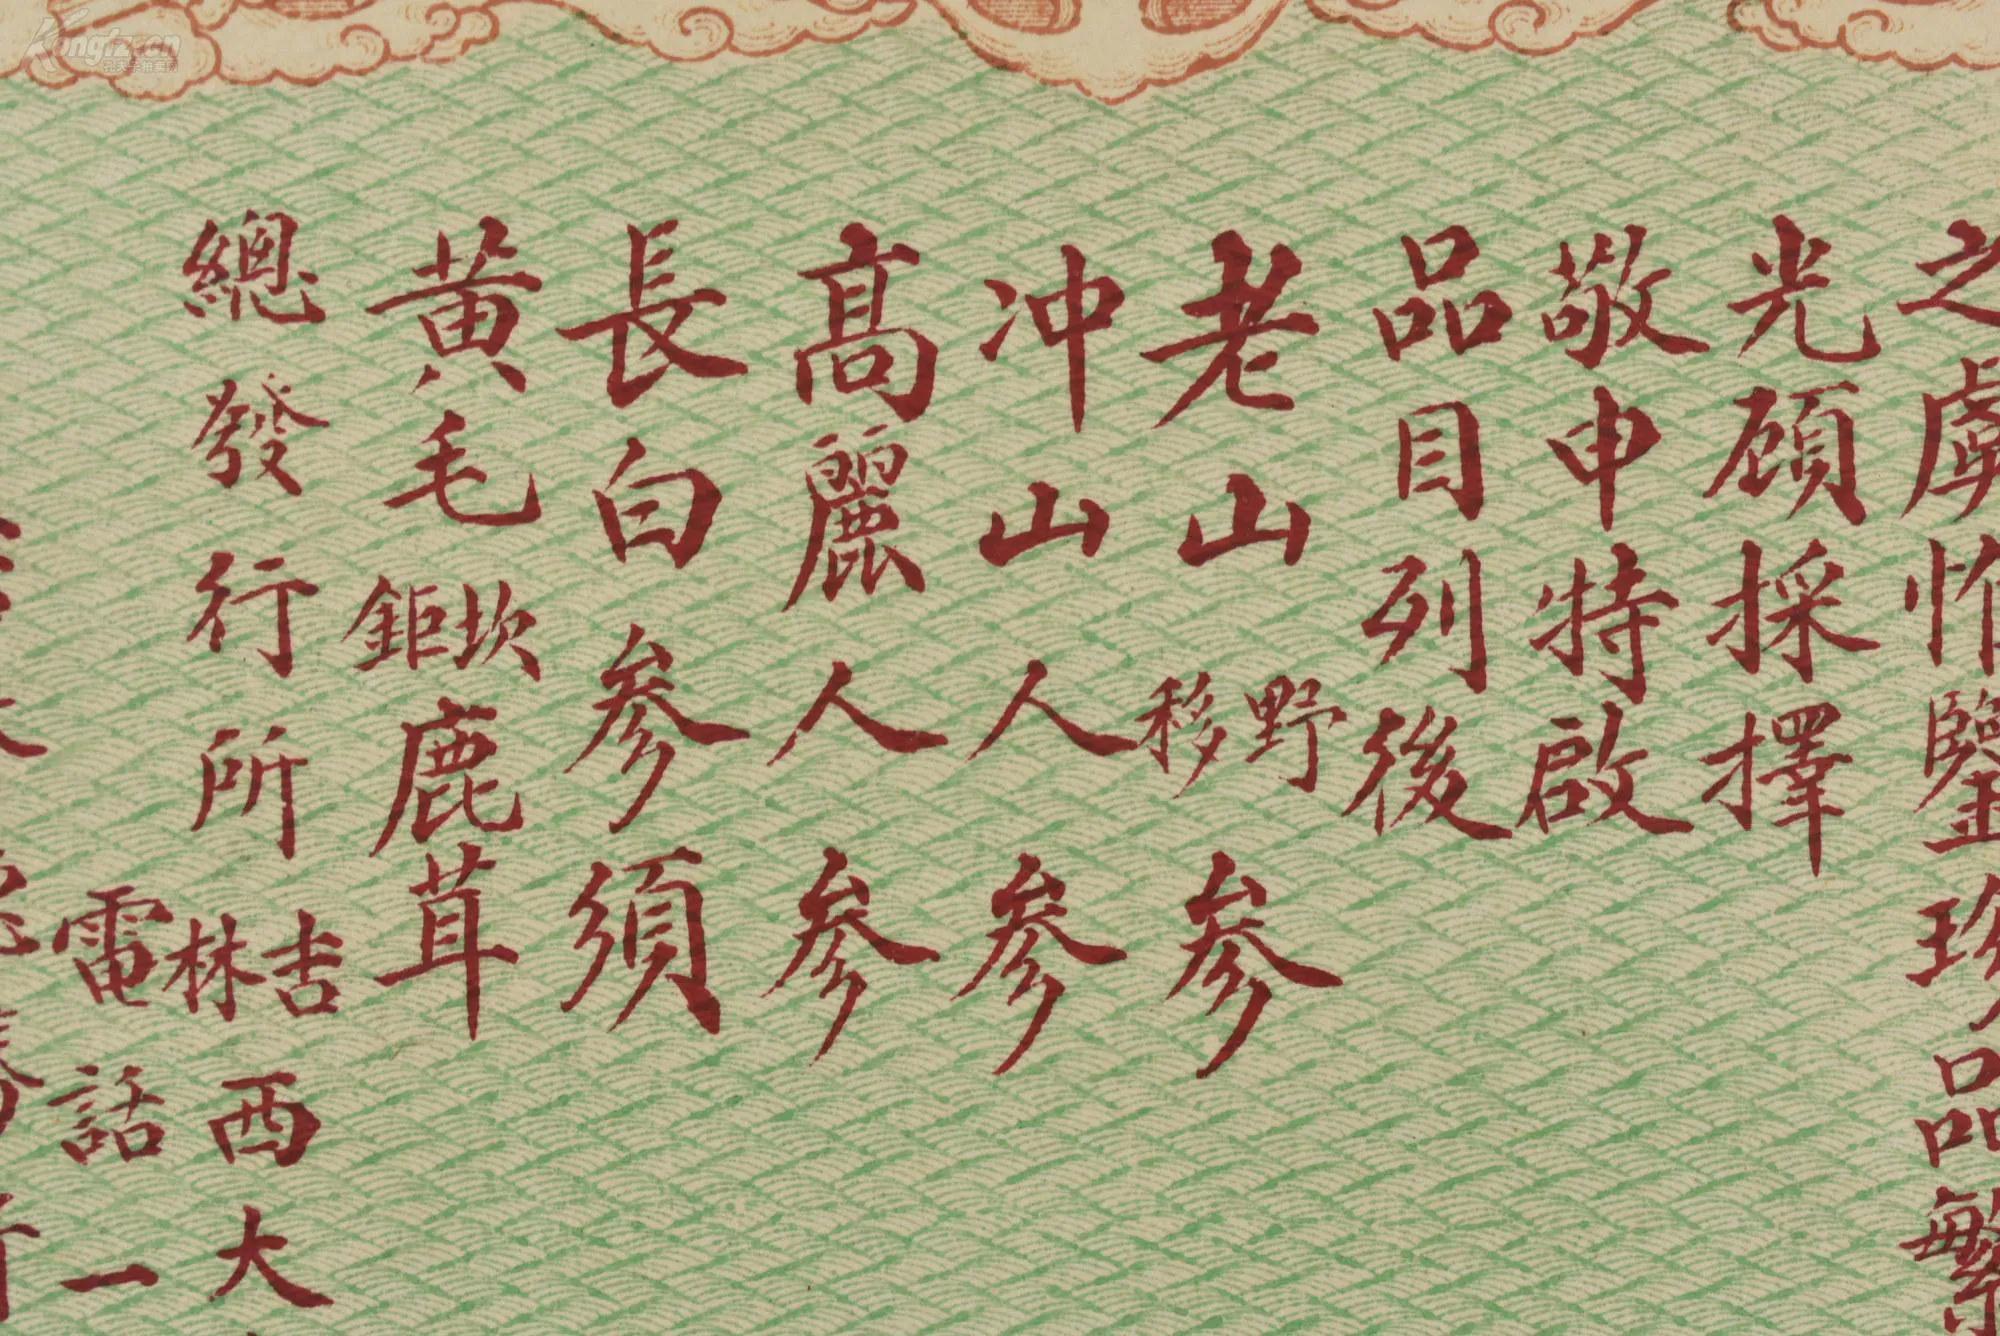 之虞惟鑒珍品繁
光顧採擇
敬申特啟
品目列後
老山野移參
冲山人參
高麗人參
長白參須
黃毛坎鉅鹿茸
總發行所吉林西大
電話一
Kongfz.cn
孔夫子拍卖网